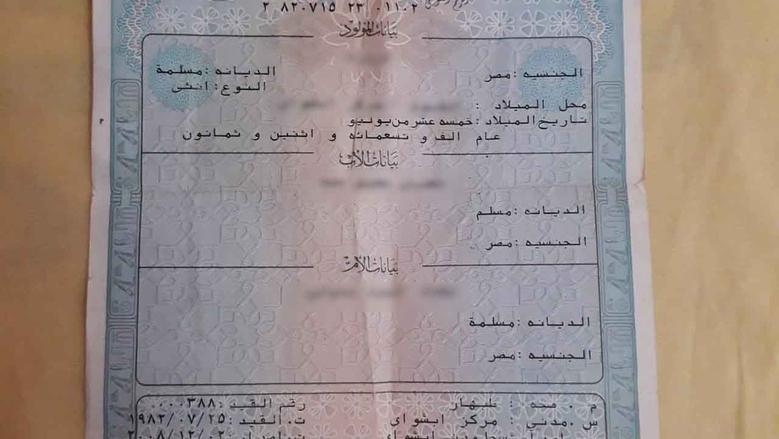 ٢ ٨٢٠٧١٥ ٢٣ ٠١١٠٢
بيانات المولود
الجنسيه : مصر
الديانه : مسلمة
النوع : انثى
محل الميلاد :
تاريخ الميلاد : خمسه عشر من يوليو
عام الف و تسعمائه و اثنين و ثمانون
بيانات الأب
الديانه : مسلم
الجنسيه : مصر
بيانات الأم
الديانه : مسلمة
الجنسيه : مصر
رقم القيد : ٠٠٠٠٣٨٨
ت. القيد : ١٩٨٢/٠٧/٢٥
س. مدني : مركز ابشواي
٢٠٠٨/١٢/٠٢